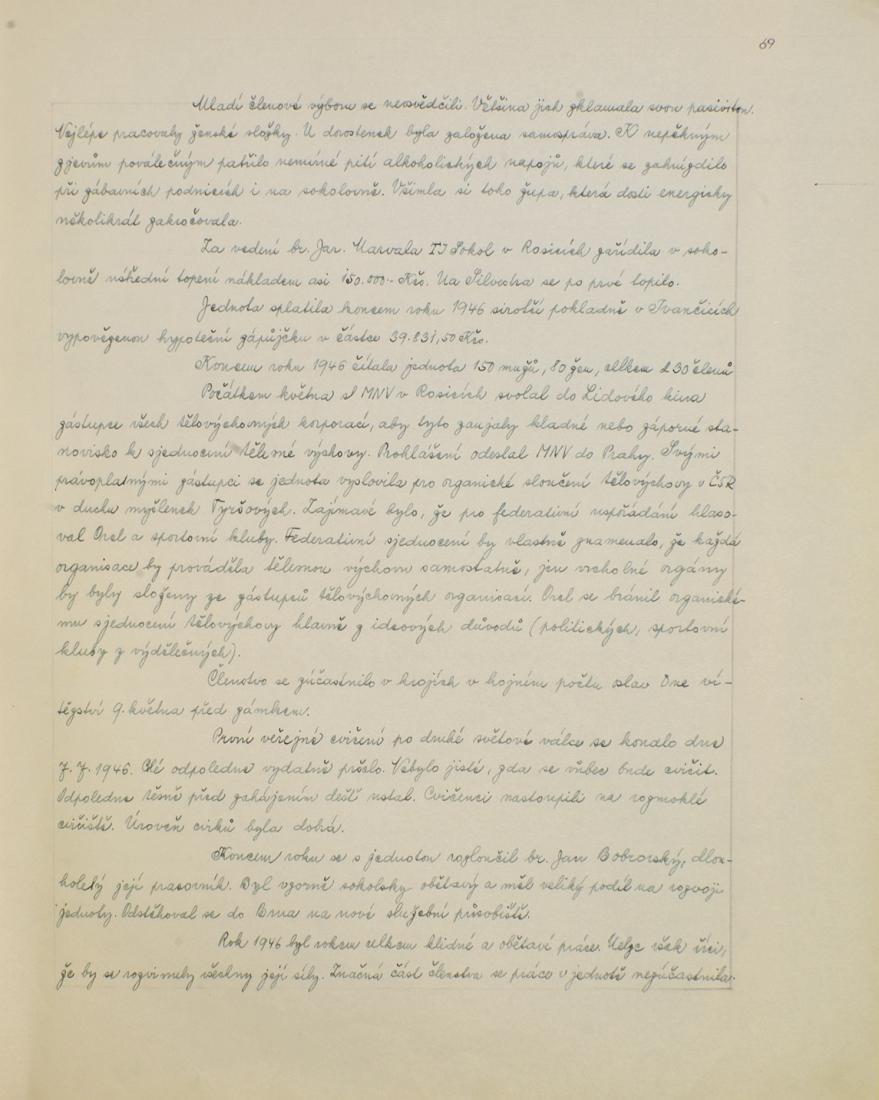 69
Mladí členové výboru se neosvědčili. Většina jich zklamala svou pasivitou.
Nejlépe pracovaly ženské složky. U dorostenek byla založena samospráva. K nepěkným
zjevům poválečným patřilo nemírné pití alkoholických napojů, které se zahnízdilo
při zábavních podnicích i na sokolovně. Všimla si toho župa, která dosti energicky
několikrát zakročovala.
Za vedení br. Jar. Marvala TJ Sokol v Rosicích zařídila v soko-
lovně ústřední topení nákladem asi 150.000.- Kčs. Na Silvestra se po prvé topilo.
Jednota splatila koncem roku 1946 sirotčí pokladně v Ivančicích
vypovězenou hypoteční zápůjčku v částce 39.831,50 Kčs.
Koncem roku 1946 čítala jednota 150 mužů, 80 žen, celkem 230 členů
Počátkem května si MNV v Rosicích svolal do Lidového kina
zástupce všech tělovýchovných korporací, aby tyto zaujaly kladné nebo záporné sta-
novisko k sjednocení tělesné výchovy. Prohlášení odeslal MNV do Prahy. Svými
právoplatnými zástupci se jednota vyslovila pro organické sloučení tělovýchovy v ČSR
v duchu myšlenek Tyršových. Zajímavé bylo, že pro federativní uspořádání hlaso-
val Orel a sportovní kluby. Federativní sjednocení by vlastně znamenalo, že každá
organisace by prováděla tělesnou výchovu samostatně, jen vrcholné orgány
by byly složeny ze zástupců tělovýchovných organisací. Orel se bránil organické-
mu sjednocení tělovýchovy hlavně z ideových důvodů (politických, sportovní
kluby z výdělečných).
Členstvo se zúčastnilo v krojích v hojném počtu oslav Dne ví-
tězství 9. května před zámkem.
První veřejné cvičení po druhé světové válce se konalo dne
7. 7. 1946. Celé odpoledne vydatně pršelo. Nebylo jisté, zda se vůbec bude cvičit.
Odpoledne těsně před zahájením déšť ustal. Cvičenci nastoupili na rozmoklé
cvičiště. Úroveň cviků byla dobrá.
Koncem roku se s jednotou rozloučil br. Jan Bobrovský, dlou-
holetý její pracovník. Byl vzorně sokolsky obětavý a měl veliký podíl na rozvoji
jednoty. Odstěhoval se do Brna na nové služební působiště.
Rok 1946 byl rokem celkem klidné a obětavé práce. Nelze však říci,
že by se rozvinuly všechny její síly. Značná část členstva se práce v jednotě nezúčastnila.